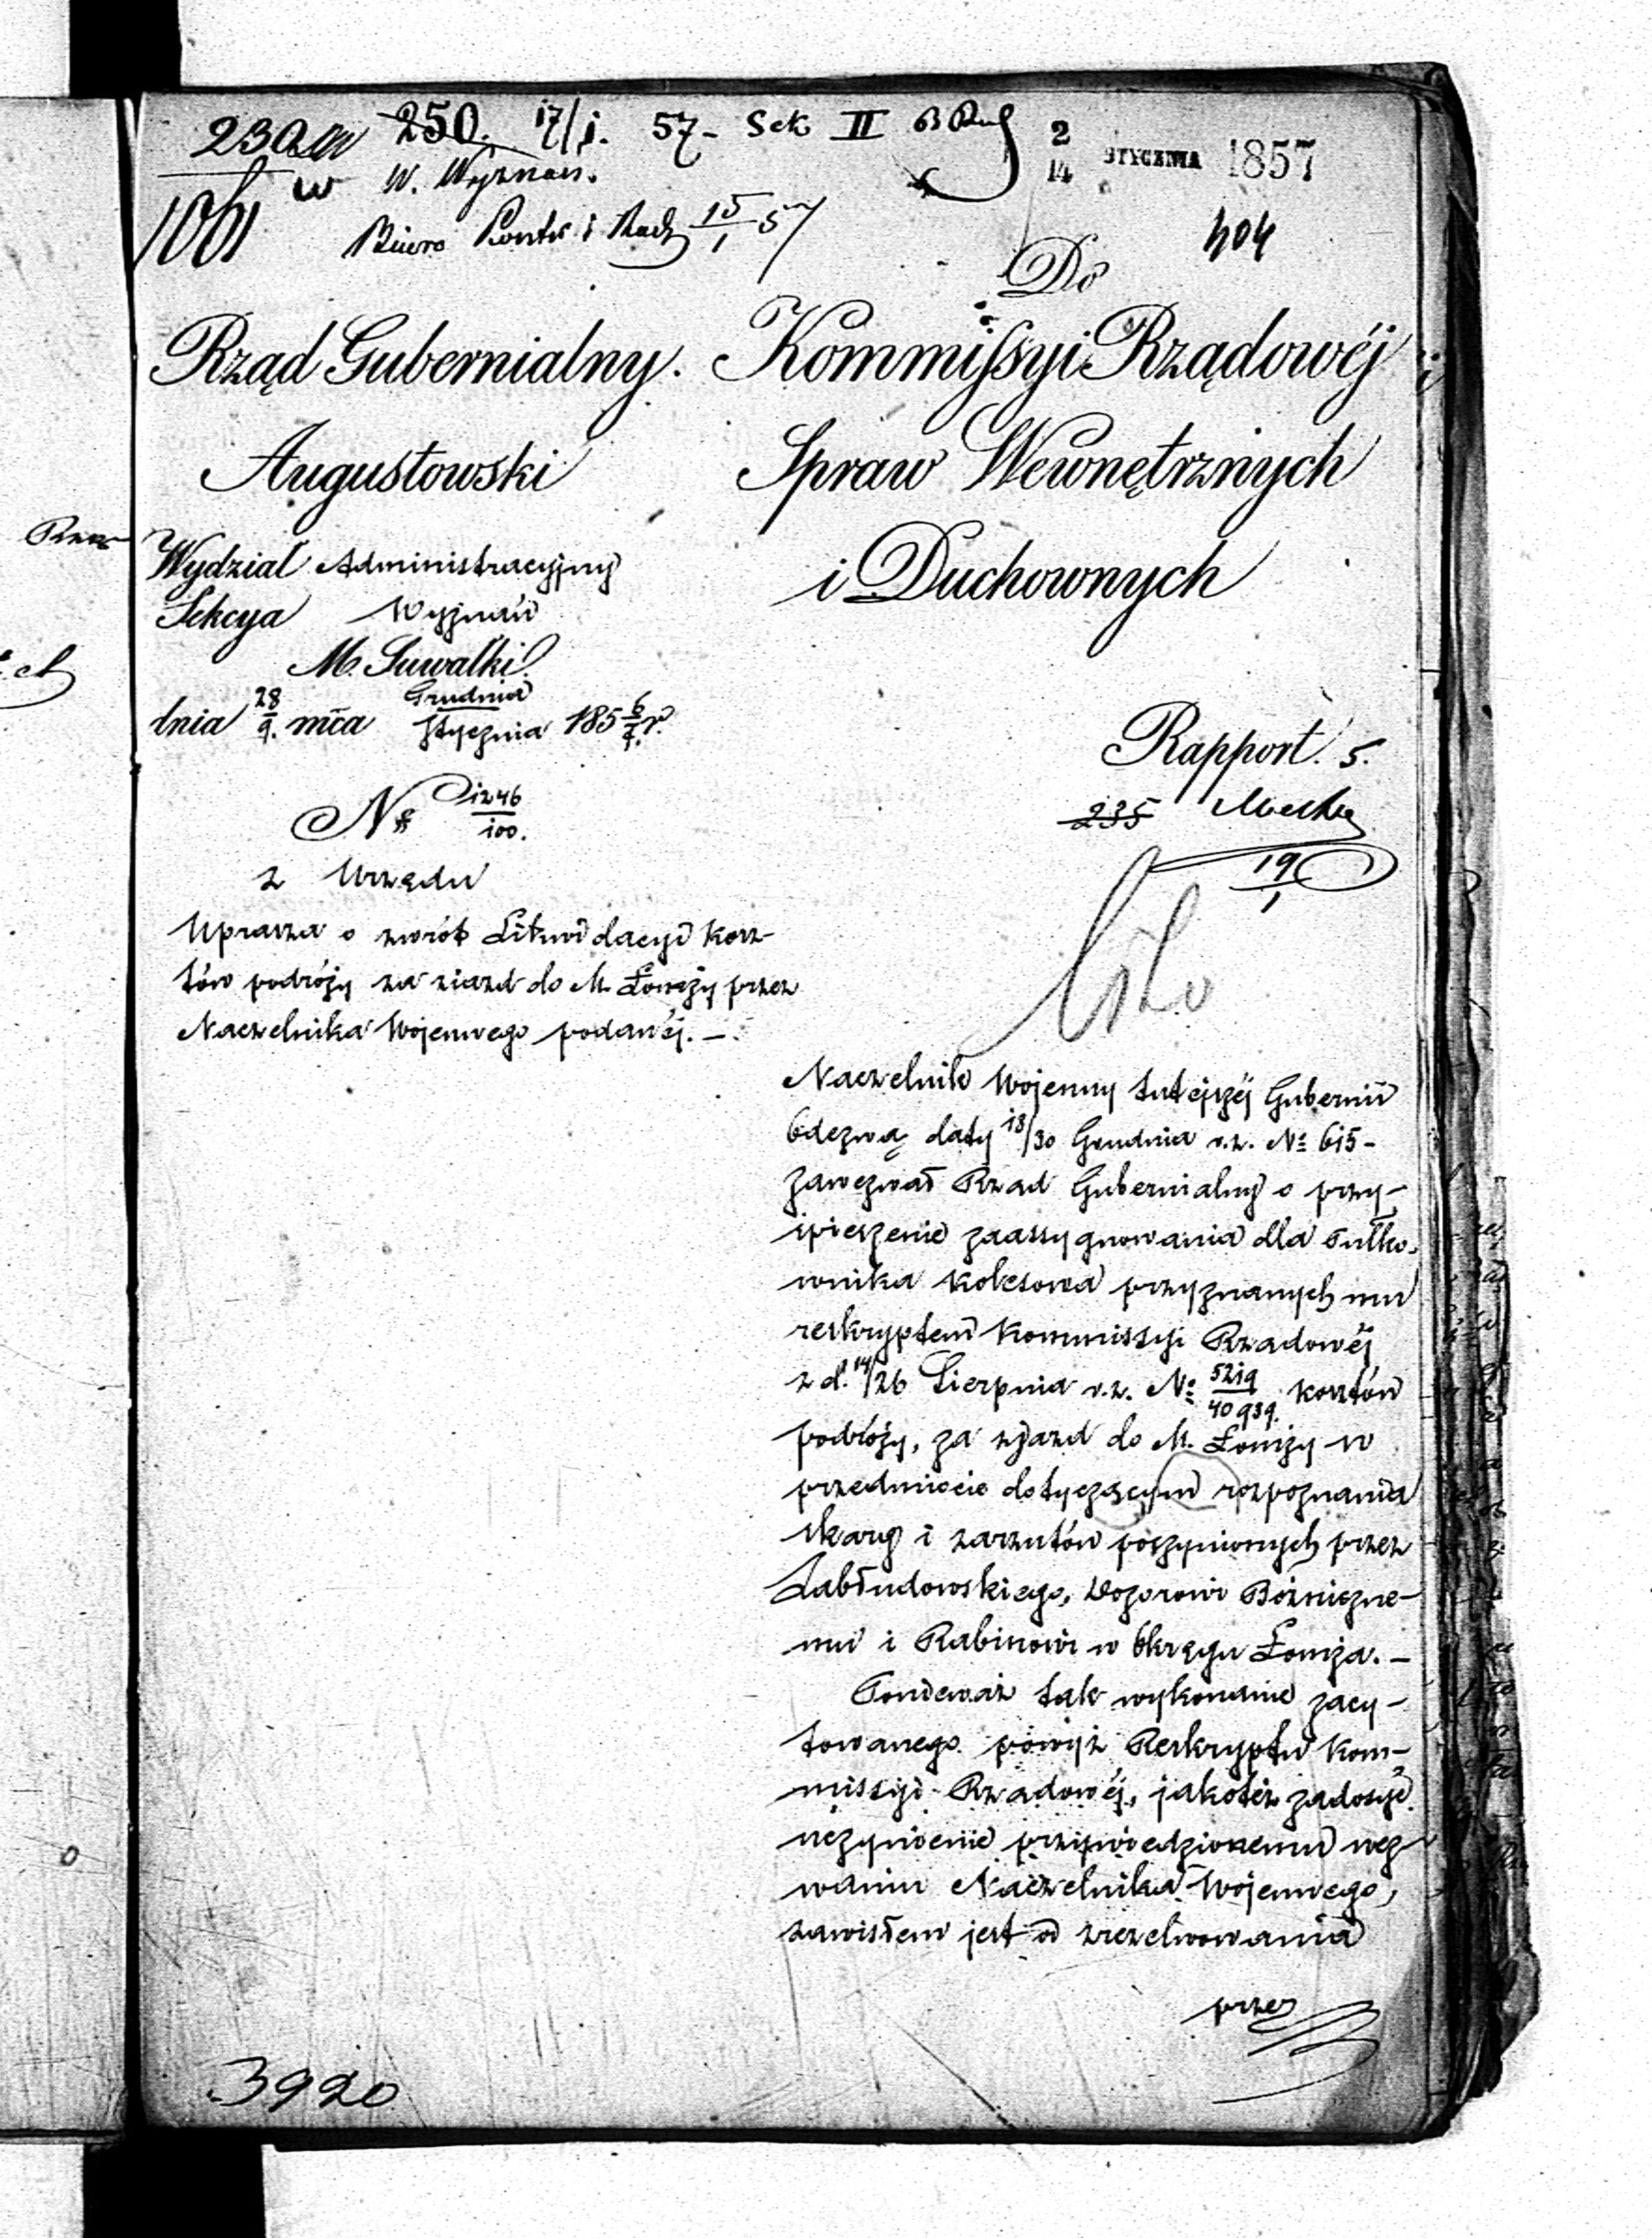 230 250. 17/1. 57- Sek II
W. Wyznań.
2/14 STYCZNIA 1857
1061
Biuro Kontr i Rach 15/1 57
404
Do
Rząd Gubernialny.
Augustowski
Kommissyi Rządowéj
Spraw Wewnętrznych
i Duchownych
Wydział Administracyjny
Sekcya Wyznań
M. Suwałki
dnia 28/9. mca Grudnia/Stycznia 185 6/7 r.
Nr 1246/100.
z Urzędu
Uprasza o zwrót Likwidacyi kosz-
tów podróży za ziazd do M. Łomży przez
Naczelnika Wojennego podanéj. –
Rapport. 5.
235
19/1
Naczelnik Wojenny tutejszéj Gubernii
Odezwą daty 18/30 Grudnia r.z. No 615-
zawezwał Rząd Gubernialny o przy-
śpieszenie zaassygnowania dla Pułko-
wnika Kolesowa przyznanych mu
reskryptem Kommissyi Rządowéj
z d. 14/26 Sierpnia r.z. No 5219/40939. kosztów
podróży, za zjazd do M. Łomży w
przedmiocie dotyczącym rozpoznania
skarg i zarzutów poczynionych przez
Zabłudowskiego, Dozorowi Bożniczne-
mu i Rabinowi w Okręgu Łomża. –
Ponieważ tak wykonanie zacy-
towanego powyż Reskryptu Kom-
missyi Rządowéj, jakoteż zadosyć
uczynienie przywiedzionemu wez-
waniu Naczelnika Wojennego,
zawisłem jest od
przez
3920